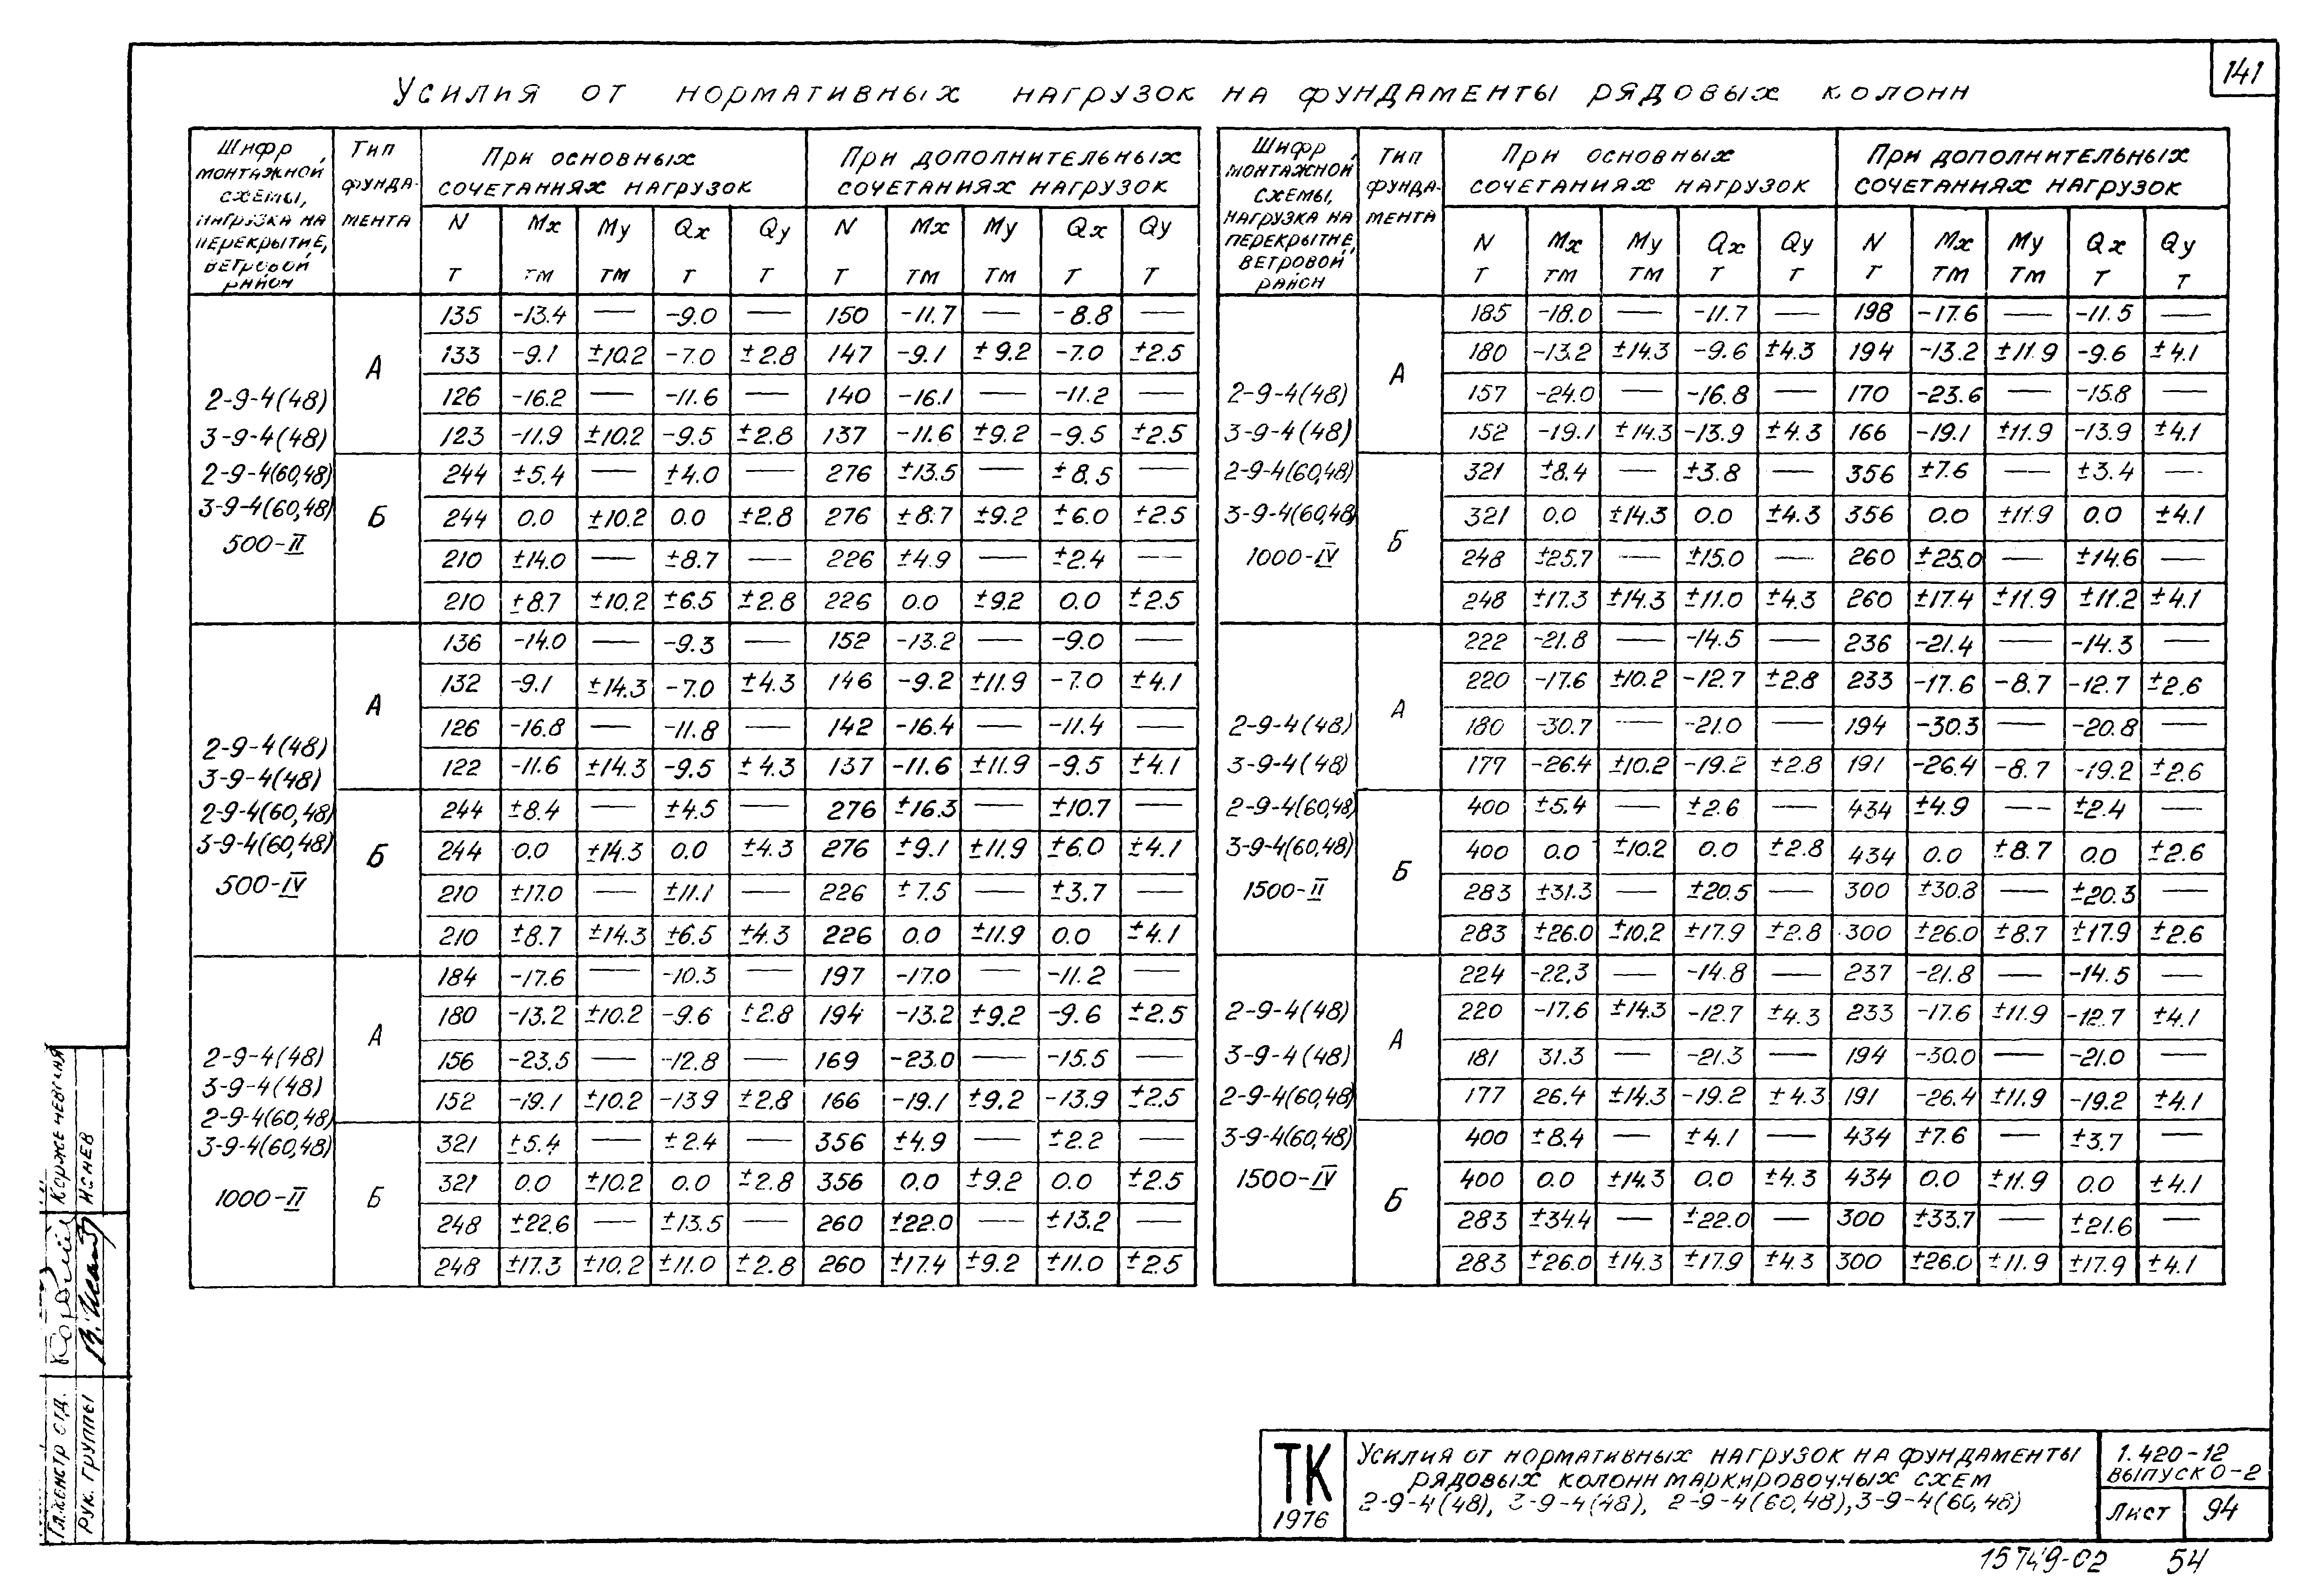 141
Усилия от нормативных нагрузок на фундаменты рядовых колонн
Шифр монтажной схемы, нагрузка на перекрытие, ветровой район | Тип фундамента | При основных сочетаниях нагрузок | При дополнительных сочетаниях нагрузок
N Mx My Qx Qy N Mx My Qx Qy
т тм тм т т т тм тм т т
2-9-4(48)
3-9-4(48)
2-9-4(60,48)
3-9-4(60,48)
500-II
А
135 -13.4 — -9.0 — 150 -11.7 — -8.8 —
133 -9.1 ±10.2 -7.0 ±2.8 147 -9.1 ±9.2 -7.0 ±2.5
126 -16.2 — -11.6 — 140 -16.1 — -11.2 —
123 -11.9 ±10.2 -9.5 ±2.8 137 -11.6 ±9.2 -9.5 ±2.5
Б
244 ±5.4 — ±4.0 — 276 ±13.5 — ±8.5 —
244 0.0 ±10.2 0.0 ±2.8 276 ±8.7 ±9.2 ±6.0 ±2.5
210 ±14.0 — ±8.7 — 226 ±4.9 — ±2.4 —
210 ±8.7 ±10.2 ±6.5 ±2.8 226 0.0 ±9.2 0.0 ±2.5
2-9-4(48)
3-9-4(48)
2-9-4(60,48)
3-9-4(60,48)
500-IV
А
136 -14.0 — -9.3 — 152 -13.2 — -9.0 —
132 -9.1 ±14.3 -7.0 ±4.3 146 -9.2 ±11.9 -7.0 ±4.1
126 -16.8 — -11.8 — 142 -16.4 — -11.4 —
122 -11.6 ±14.3 -9.5 ±4.3 137 -11.6 ±11.9 -9.5 ±4.1
Б
244 ±8.4 — ±4.5 — 276 ±16.3 — ±10.7 —
244 0.0 ±14.3 0.0 ±4.3 276 ±9.1 ±11.9 ±6.0 ±4.1
210 ±17.0 — ±11.1 — 226 ±7.5 — ±3.7 —
210 ±8.7 ±14.3 ±6.5 ±4.3 226 0.0 ±11.9 0.0 ±4.1
2-9-4(48)
3-9-4(48)
2-9-4(60,48)
3-9-4(60,48)
1000-II
А
184 -17.6 — -10.3 — 197 -17.0 — -11.2 —
180 -13.2 ±10.2 -9.6 ±2.8 194 -13.2 ±9.2 -9.6 ±2.5
156 -23.5 — -12.8 — 169 -23.0 — -15.5 —
152 -19.1 ±10.2 -13.9 ±2.8 166 -19.1 ±9.2 -13.9 ±2.5
Б
321 ±5.4 — ±2.4 — 356 ±4.9 — ±2.2 —
321 0.0 ±10.2 0.0 ±2.8 356 0.0 ±9.2 0.0 ±2.5
248 ±22.6 — ±13.5 — 260 ±22.0 — ±13.2 —
248 ±17.3 ±10.2 ±11.0 ±2.8 260 ±17.4 ±9.2 ±11.0 ±2.5
Шифр монтажной схемы, нагрузка на перекрытие, ветровой район | Тип фундамента | При основных сочетаниях нагрузок | При дополнительных сочетаниях нагрузок
N Mx My Qx Qy N Mx My Qx Qy
т тм тм т т т тм тм т т
2-9-4(48)
3-9-4(48)
2-9-4(60,48)
3-9-4(60,48)
1000-IV
А
185 -18.0 — -11.7 — 198 -17.6 — -11.5 —
180 -13.2 ±14.3 -9.6 ±4.3 194 -13.2 ±11.9 -9.6 ±4.1
157 -24.0 — -16.8 — 170 -23.6 — -15.8 —
152 -19.1 ±14.3 -13.9 ±4.3 166 -19.1 ±11.9 -13.9 ±4.1
Б
321 ±8.4 — ±3.8 — 356 ±7.6 — ±3.4 —
321 0.0 ±14.3 0.0 ±4.3 356 0.0 ±11.9 0.0 ±4.1
248 ±25.7 — ±15.0 — 260 ±25.0 — ±14.6 —
248 ±17.3 ±14.3 ±11.0 ±4.3 260 ±17.4 ±11.9 ±11.2 ±4.1
2-9-4(48)
3-9-4(48)
2-9-4(60,48)
3-9-4(60,48)
1500-II
А
222 -21.8 — -14.5 — 236 -21.4 — -14.3 —
220 -17.6 ±10.2 -12.7 ±2.8 233 -17.6 -8.7 -12.7 ±2.6
180 -30.7 — -21.0 — 194 -30.3 — -20.8 —
177 -26.4 ±10.2 -19.2 ±2.8 191 -26.4 -8.7 -19.2 ±2.6
Б
400 ±5.4 — ±2.6 — 434 ±4.9 — ±2.4 —
400 0.0 ±10.2 0.0 ±2.8 434 0.0 ±8.7 0.0 ±2.6
283 ±31.3 — ±20.5 — 300 ±30.8 — ±20.3 —
283 ±26.0 ±10.2 ±17.9 ±2.8 300 ±26.0 ±8.7 ±17.9 ±2.6
2-9-4(48)
3-9-4(48)
2-9-4(60,48)
3-9-4(60,48)
1500-IV
А
224 -22.3 — -14.8 — 237 -21.8 — -14.5 —
220 -17.6 ±14.3 -12.7 ±4.3 233 -17.6 ±11.9 -12.7 ±4.1
181 31.3 — -21.3 — 194 -30.0 — -21.0 —
177 26.4 ±14.3 -19.2 ±4.3 191 -26.4 ±11.9 -19.2 ±4.1
Б
400 ±8.4 — ±4.1 — 434 ±7.6 — ±3.7 —
400 0.0 ±14.3 0.0 ±4.3 434 0.0 ±11.9 0.0 ±4.1
283 ±34.4 — ±22.0 — 300 ±33.7 — ±21.6 —
283 ±26.0 ±14.3 ±17.9 ±4.3 300 ±26.0 ±11.9 ±17.9 ±4.1
Гл. констр отд.
Рук. группы
Исаев
ТК
1976
Усилия от нормативных нагрузок на фундаменты
рядовых колонн маркировочных схем
2-9-4(48), 3-9-4(48), 2-9-4(60,48), 3-9-4(60,48)
1.420-12
выпуск 0-2
Лист 94
15749-02 54